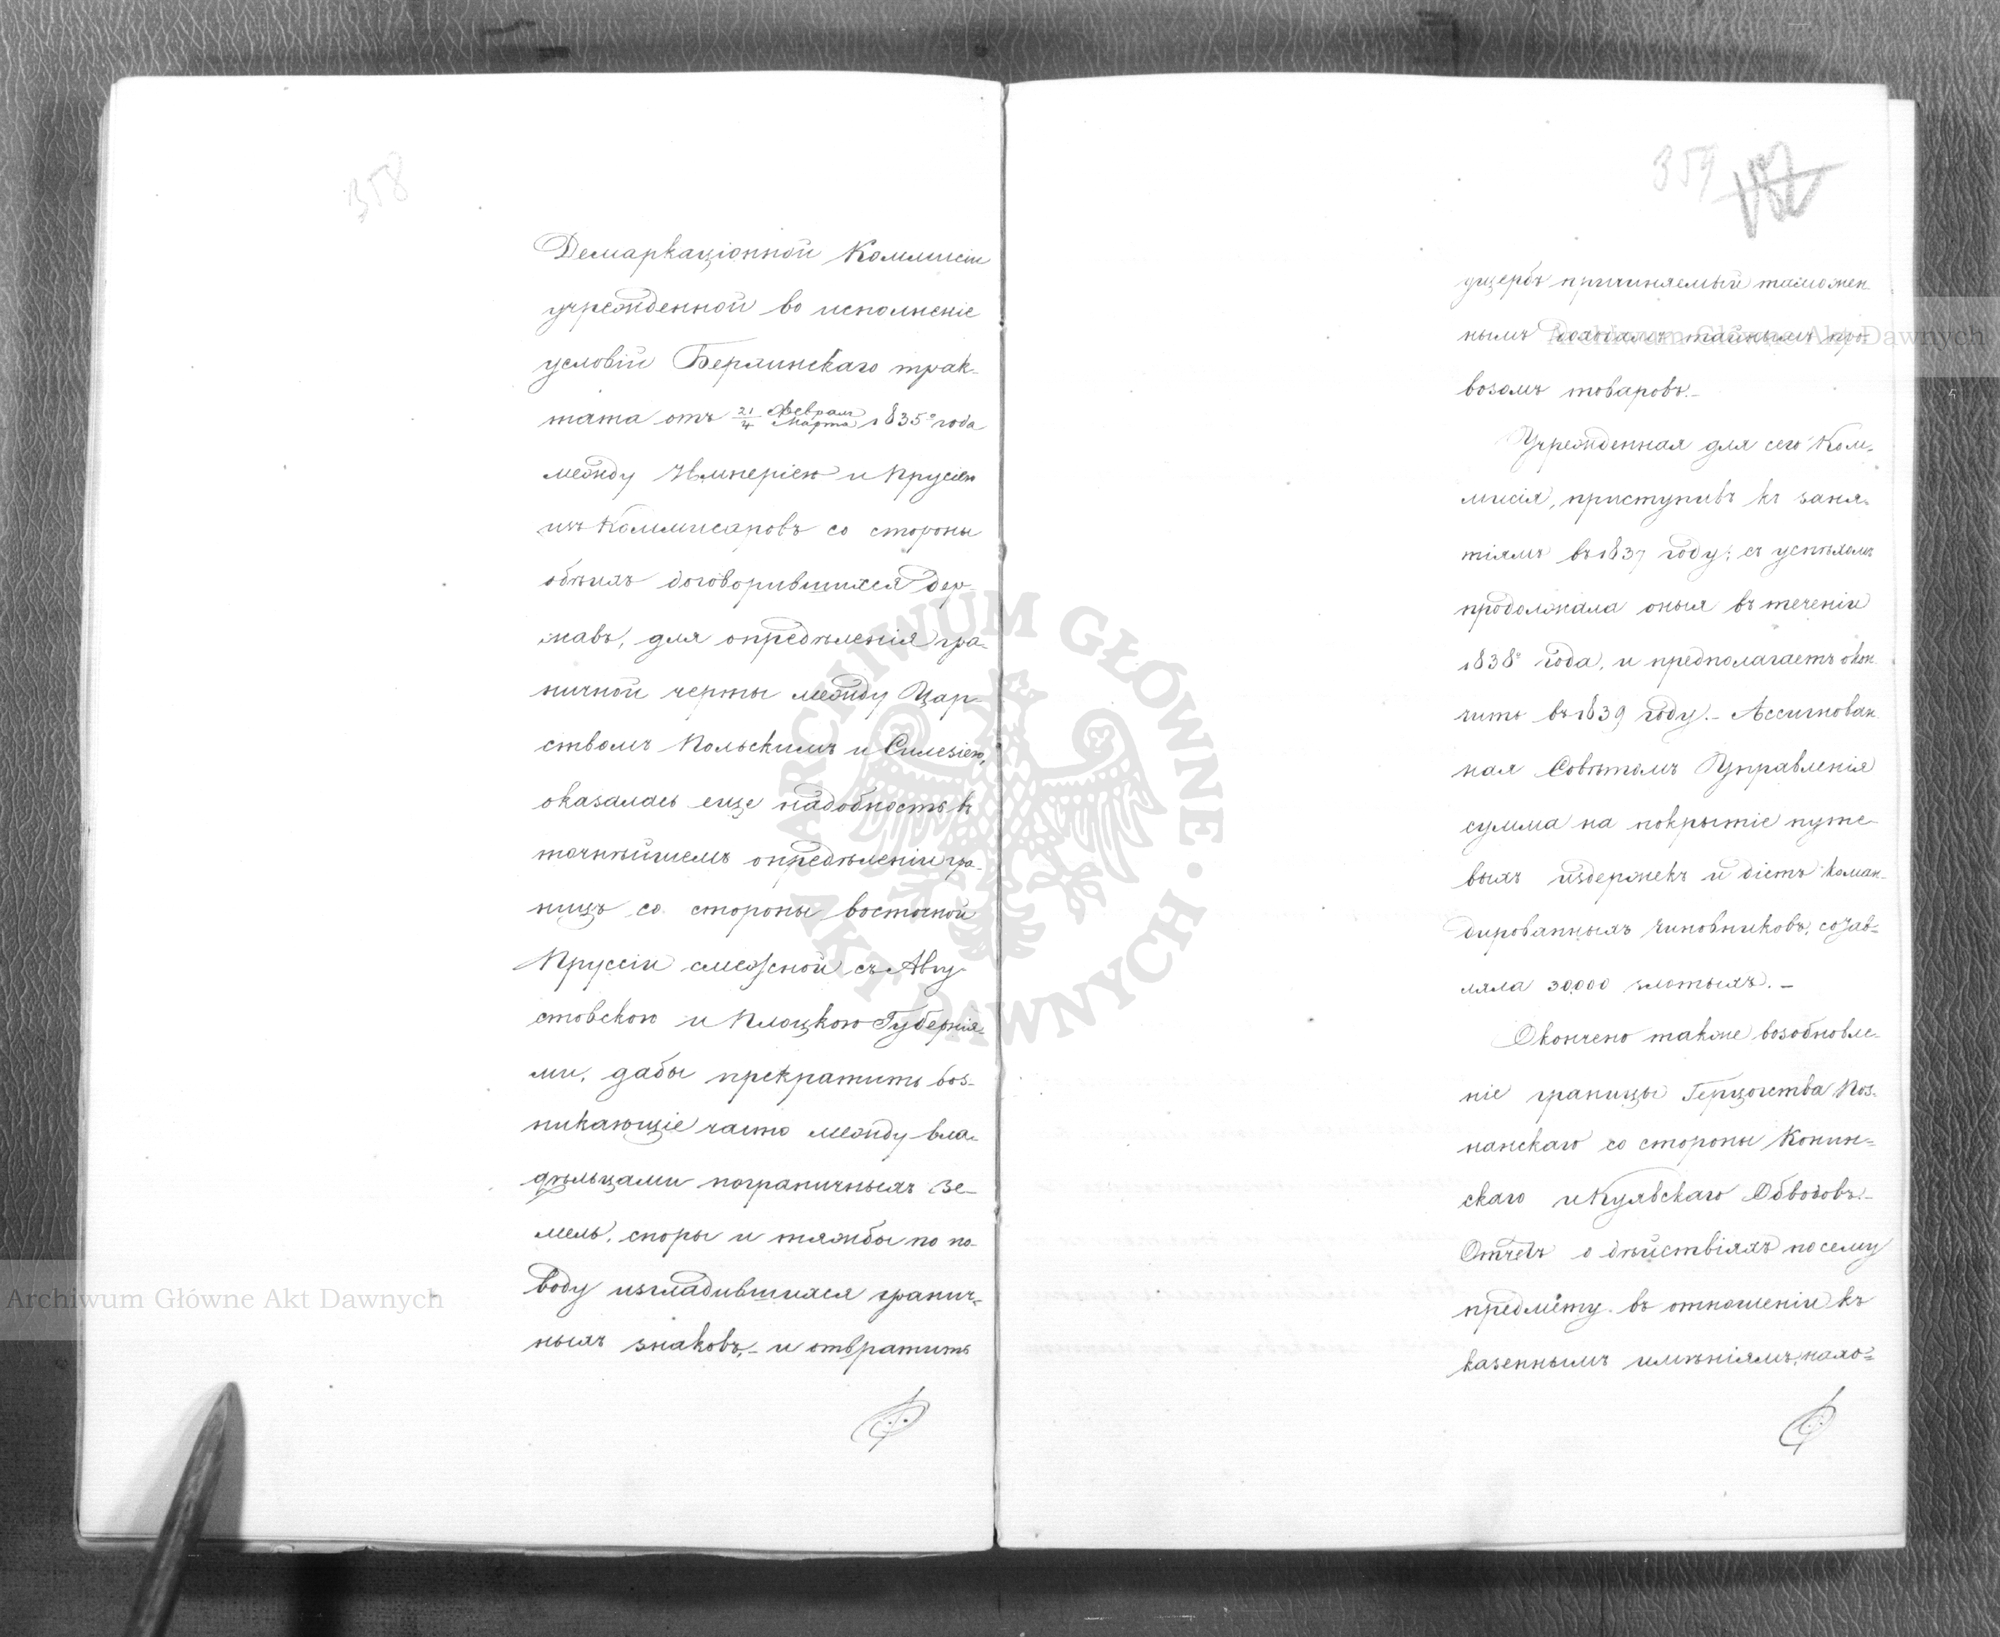 358
Демаркаціонной Коммисіи
учрежденной во исполненіе
условій Берлинскаго трак-
тата отъ 21/4 Февраля/Марта 1835º года
между Имперіею и Прусіею
изъ Коммисаровъ со стороны
обѣихъ договорившихся дер-
жавъ, для опредѣленія гра-
ничной черты между Цар-
ствомъ Польскимъ и Силезіею,
оказалась еще надобность въ
точнѣйшемъ опредѣленіи гра-
ницъ со стороны восточной
Пруссіи смежной съ Авгу-
стовскою и Плоцкою Губернія-
ми, дабы прекратить воз-
никающіе часто между вла-
дѣльцами пограничныхъ зе-
мель, споры и тяжбы по по-
воду изгладившихся гранич-
ныхъ знаковъ, - и отвратить
359
ущербъ причиняемый таможен-
нымъ доходамъ тайнымъ про-
возомъ товаровъ.-
Учрежденная для сего Ком-
мисія, приступивъ къ заня-
тіямъ въ 1837 году, съ успѣхомъ
продолжала оныя въ теченіи
1838º года, и предполагаетъ окон-
чить въ 1839 году.- Ассигнован-
ная Совѣтомъ Управленія
сумма на покрытіе путе-
выхъ издержекъ и діетъ коман-
дированныхъ чиновниковъ, состав-
ляла 30,000 злотыхъ.-
Окончено также возобновле-
ніе границы Герцогства Поз-
нанскаго со стороны Конин-
скаго и Куявскаго Обводовъ.-
Отчетъ о дѣйствіяхъ по сему
предмету въ отношеніи къ
казеннымъ имѣніямъ, нахо-
Archiwum Główne Akt Dawnych
Archiwum Główne Akt Dawnych
ARCHIWUM GŁÓWNE · AKT DAWNYCH ·